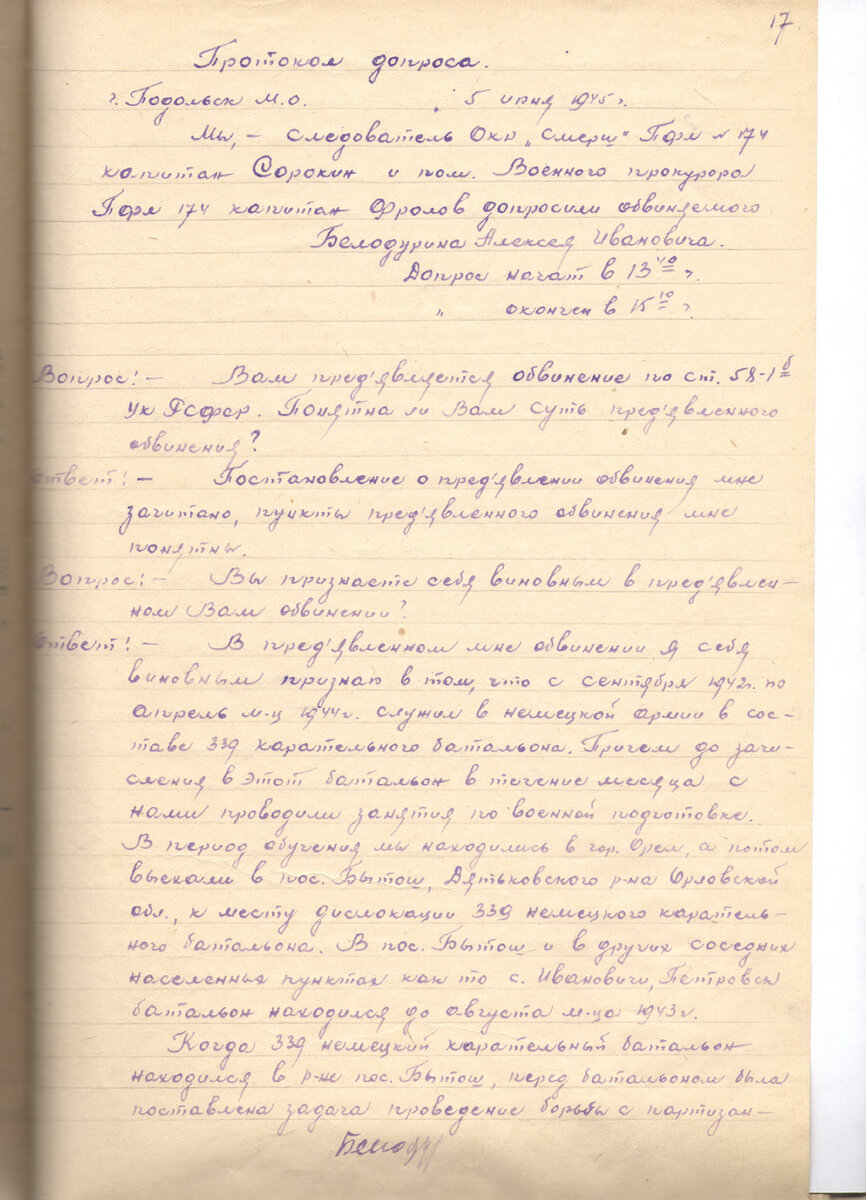 17
Протокол допроса.
г. Подольск М.О. 5 июня 1945 г.
Мы, – следователь Окр „Смерш" Пфл № 174
капитан Сорокин и пом. Военного прокурора
Пфл 174 капитан Фролов допросили обвиняемого
Белодурина Алексея Ивановича.
Допрос начат в 13 40 ч.
„ окончен в 15 10 ч.
Вопрос: – Вам пред'является обвинение по ст. 58-1 б
УК РСФСР. Понятна ли Вам суть пред'явленного
обвинения?
Ответ: – Постановление о пред'явлении обвинения мне
зачитано, пункты пред'явленного обвинения мне
понятны.
Вопрос: – Вы признаете себя виновным в пред'явлен-
ном Вам обвинении?
Ответ: – В пред'явленном мне обвинении я себя
виновным признаю в том, что с сентября 1942г. по
апрель м-ц 1944г. служил в немецкой армии в сос-
таве 339 карательного батальона. Причем до зачи-
сления в этот батальон в течение месяца с
нами проводили занятия по военной подготовке.
В период обучения мы находились в гор. Орел, а потом
выехали в пос. Бытош, Дятьковского р-на Орловской
обл., к месту дислокации 339 немецкого каратель-
ного батальона. В пос. Бытош и в других соседних
населенных пунктах как то с. Ивановичи, Петровск
батальон находился до августа м-ца 1943г.
Когда 339 немецкий карательный батальон
находился в р-не пос. Бытош, перед батальоном была
поставлена задача проведение борьбы с партизан-
Белоду